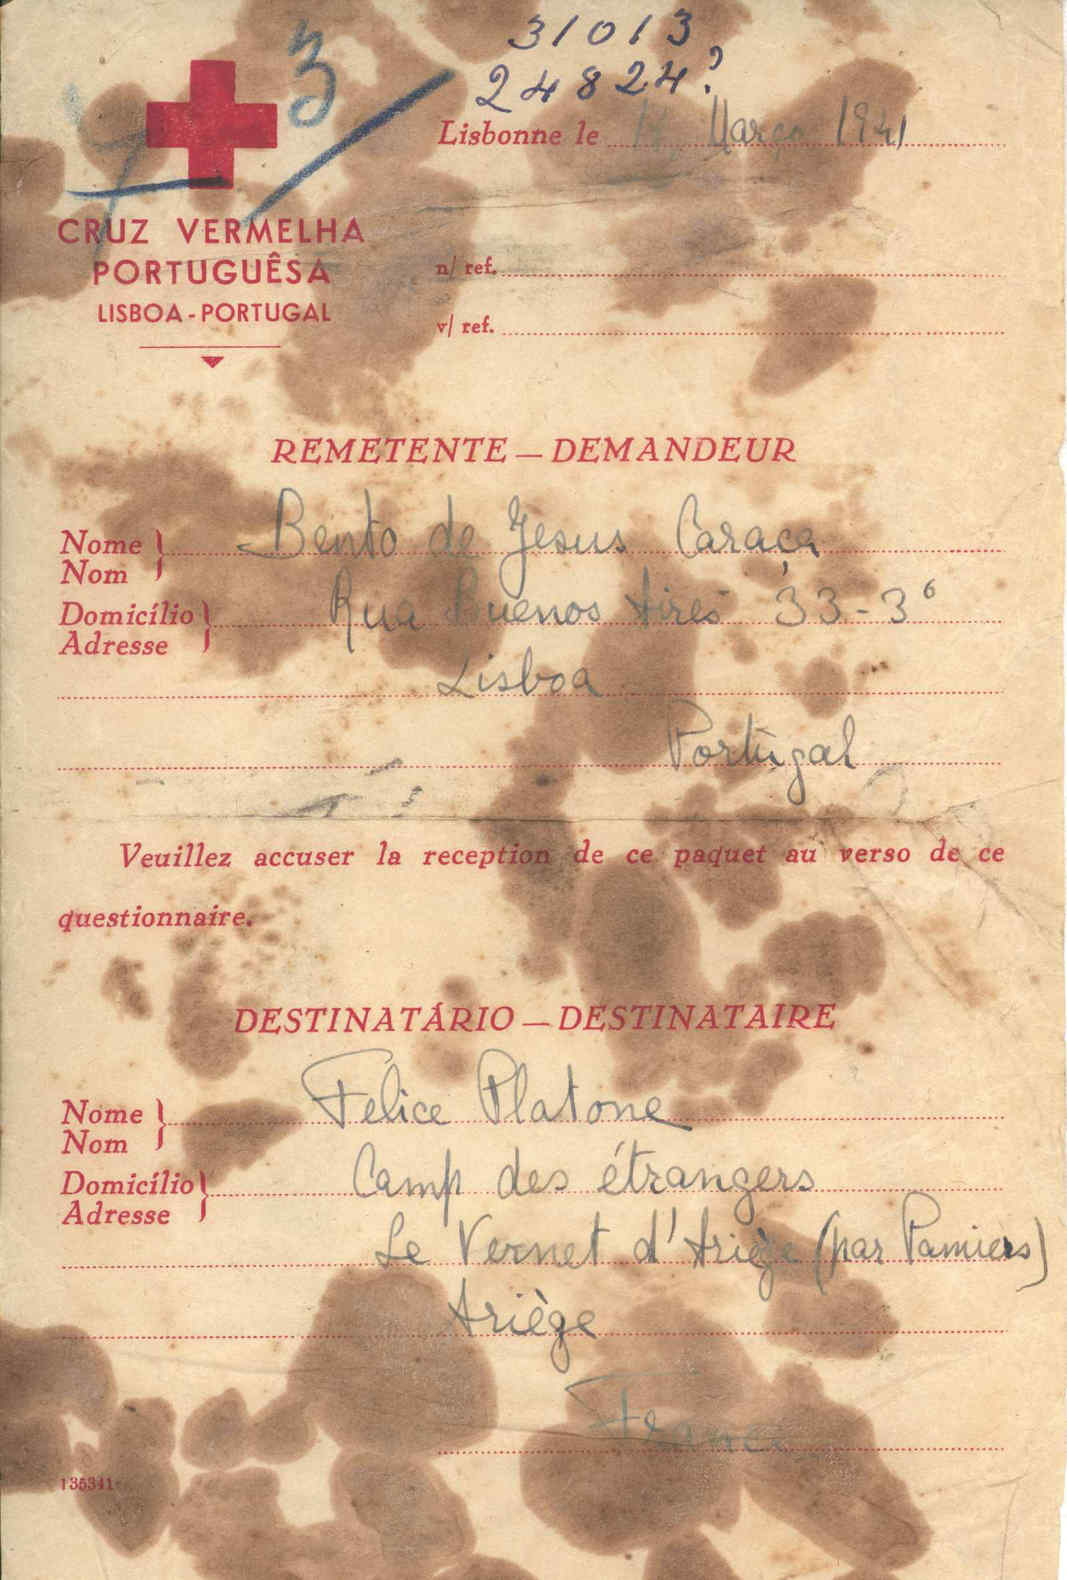 3
31013
24824?
7
Lisbonne le 14 Março 1941
CRUZ VERMELHA
PORTUGUÊSA
LISBOA - PORTUGAL
n/ ref.
v/ ref.
REMETENTE — DEMANDEUR
Nome
Nom
Bento de Jesus Caraça
Domicílio
Adresse
Rua Buenos Aires 33-3º
Lisboa
Portugal
Veuillez accuser la reception de ce paquet au verso de ce
questionnaire.
DESTINATÁRIO — DESTINATAIRE
Nome
Nom
Felice Platone
Domicílio
Adresse
Camp des étrangers
Le Vernet d'Ariège (par Pamiers)
Ariège
France
135341